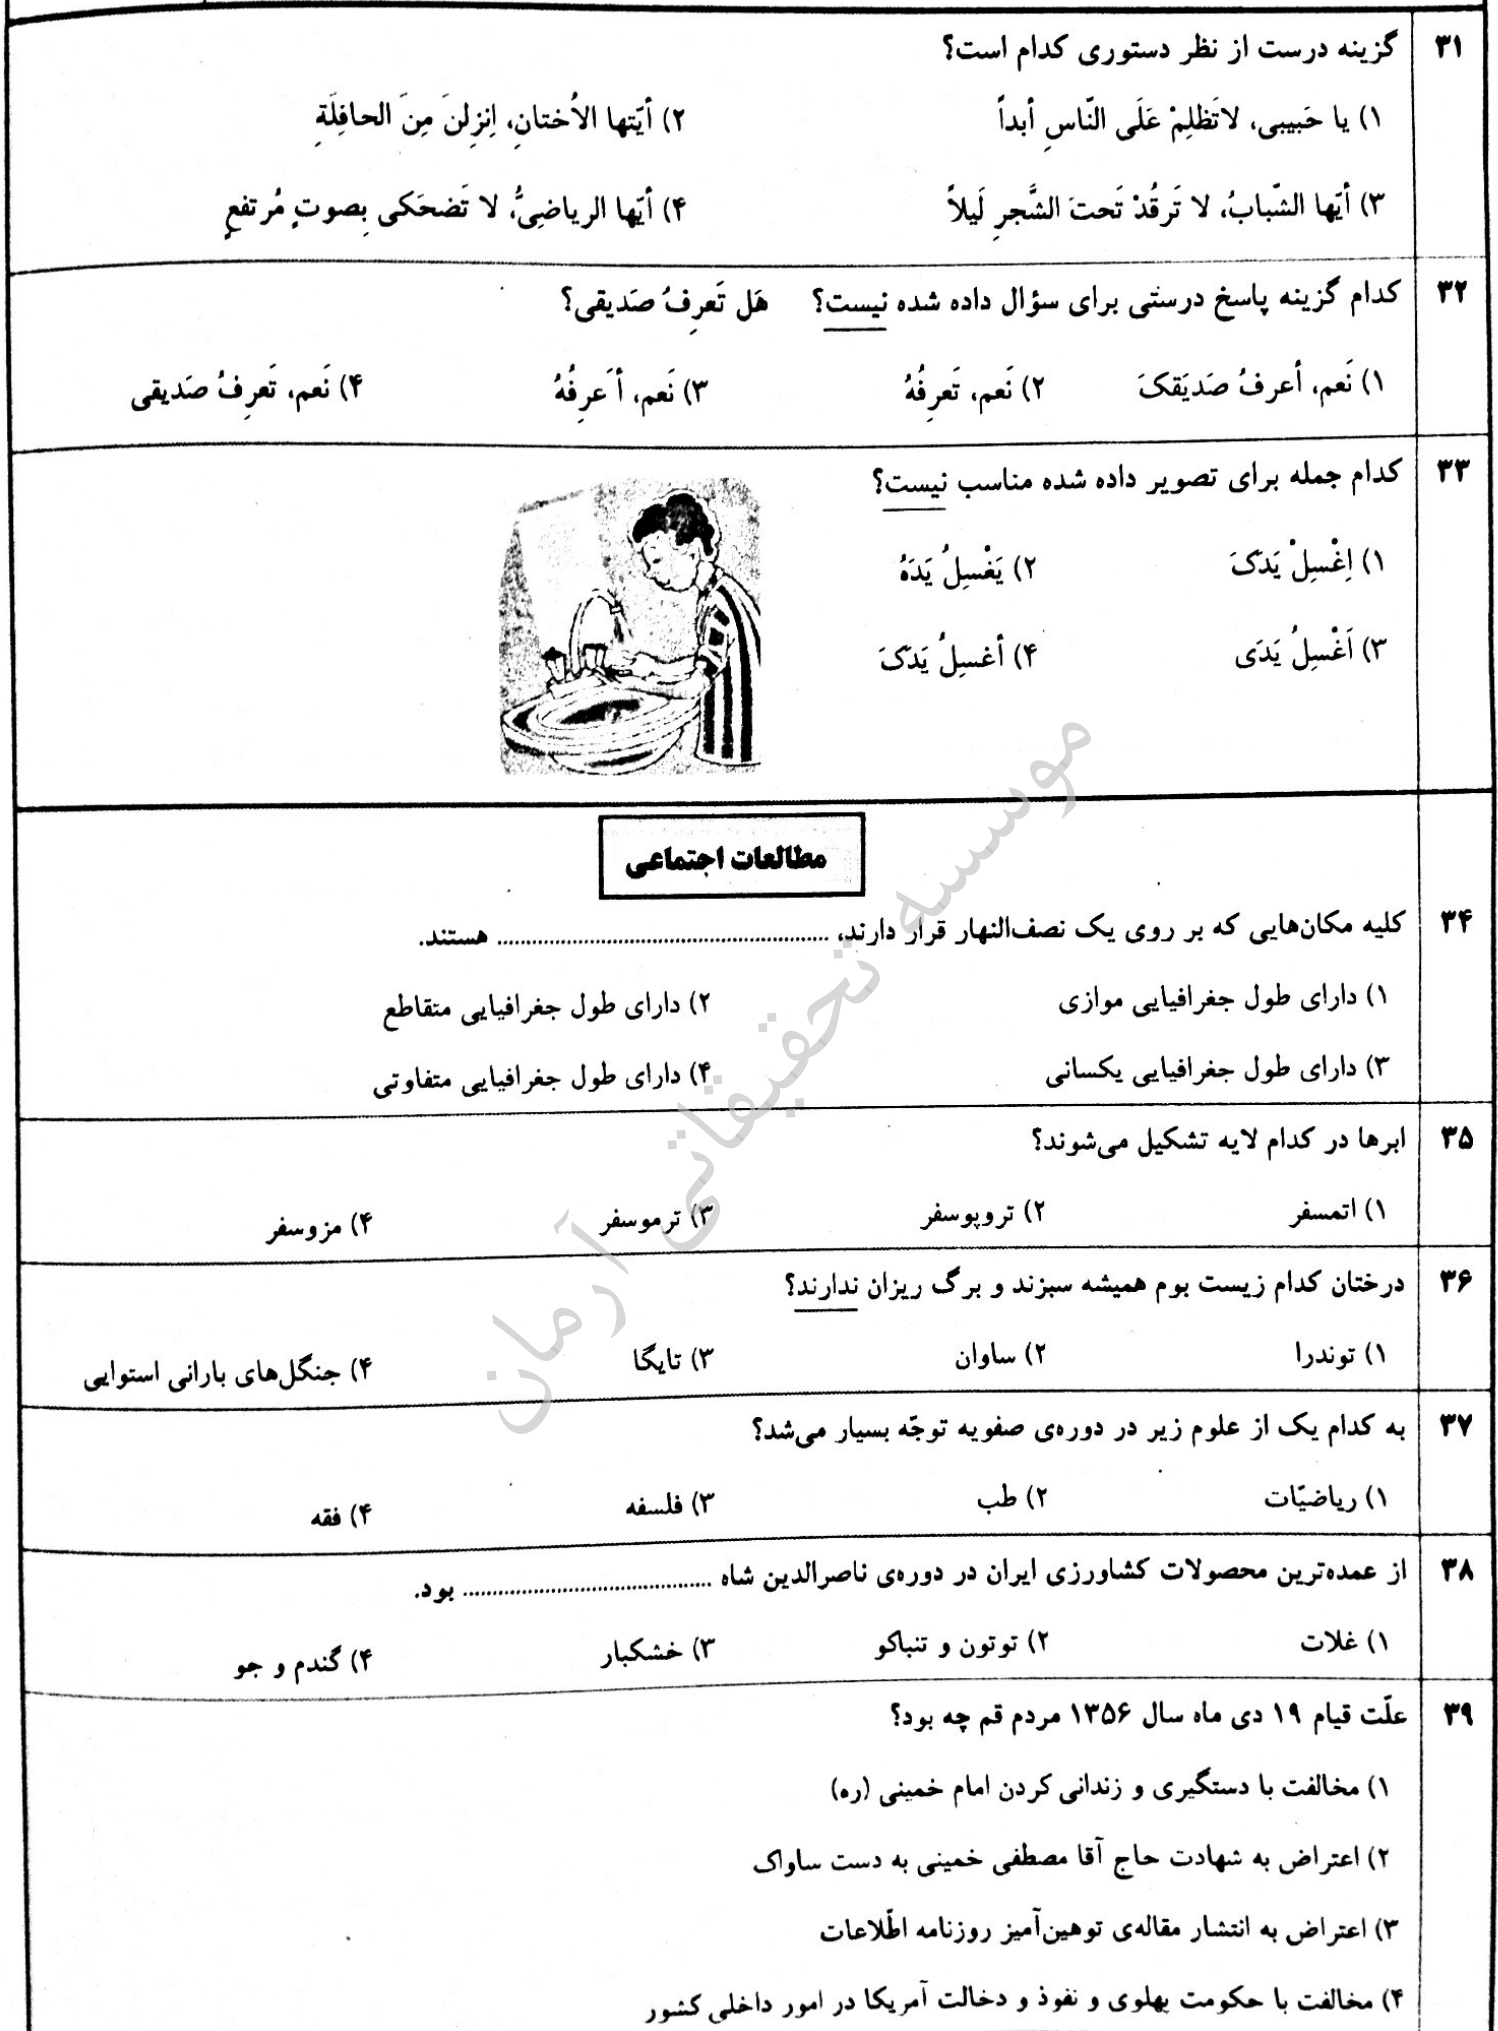 ۳۱ گزینه درست از نظر دستوری کدام است؟
۱) یا حَبیبی، لاتَظلِمْ عَلَی النّاسِ أبداً ۲) أیّتها الأختانِ، اِنزِلنَ مِنَ الحافِلَةِ
۳) أیّها الشّبابُ، لا تَرقُدْ تَحتَ الشَّجرِ لَیلاً ۴) أیّها الریاضِیُّ، لا تَضحَکی بِصوتٍ مُرتفعٍ
۳۲ کدام گزینه پاسخ درستی برای سؤال داده شده نیست؟ هَل تَعرِفُ صَدیقی؟
۱) نَعم، أعرفُ صَدیَقکَ ۲) نَعم، تَعرِفُهُ ۳) نَعم، أَعرِفُهُ ۴) نَعم، تَعرِفُ صَدیقی
۳۳ کدام جمله برای تصویر داده شده مناسب نیست؟
۱) اِغْسِلْ یَدَکَ ۲) یَغْسِلُ یَدَهُ
۳) اَغْسِلُ یَدَی ۴) أغسِلُ یَدَکَ
مطالعات اجتماعی
۳۴ کلیه مکان‌هایی که بر روی یک نصف‌النهار قرار دارند، ........................................ هستند.
۱) دارای طول جغرافیایی موازی ۲) دارای طول جغرافیایی متقاطع
۳) دارای طول جغرافیایی یکسانی ۴) دارای طول جغرافیایی متفاوتی
۳۵ ابرها در کدام لایه تشکیل می‌شوند؟
۱) اتمسفر ۲) تروپوسفر ۳) ترموسفر ۴) مزوسفر
۳۶ درختان کدام زیست بوم همیشه سبزند و برگ ریزان ندارند؟
۱) توندرا ۲) ساوان ۳) تایگا ۴) جنگل‌های بارانی استوایی
۳۷ به کدام یک از علوم زیر در دوره‌ی صفویه توجّه بسیار می‌شد؟
۱) ریاضیّات ۲) طب ۳) فلسفه ۴) فقه
۳۸ از عمده‌ترین محصولات کشاورزی ایران در دوره‌ی ناصرالدین شاه ........................................ بود.
۱) غلات ۲) توتون و تنباکو ۳) خشکبار ۴) گندم و جو
۳۹ علّت قیام ۱۹ دی ماه سال ۱۳۵۶ مردم قم چه بود؟
۱) مخالفت با دستگیری و زندانی کردن امام خمینی (ره)
۲) اعتراض به شهادت حاج آقا مصطفی خمینی به دست ساواک
۳) اعتراض به انتشار مقاله‌ی توهین‌آمیز روزنامه اطّلاعات
۴) مخالفت با حکومت پهلوی و نفوذ و دخالت آمریکا در امور داخلی کشور
موسسه تحقیقاتی آرمان